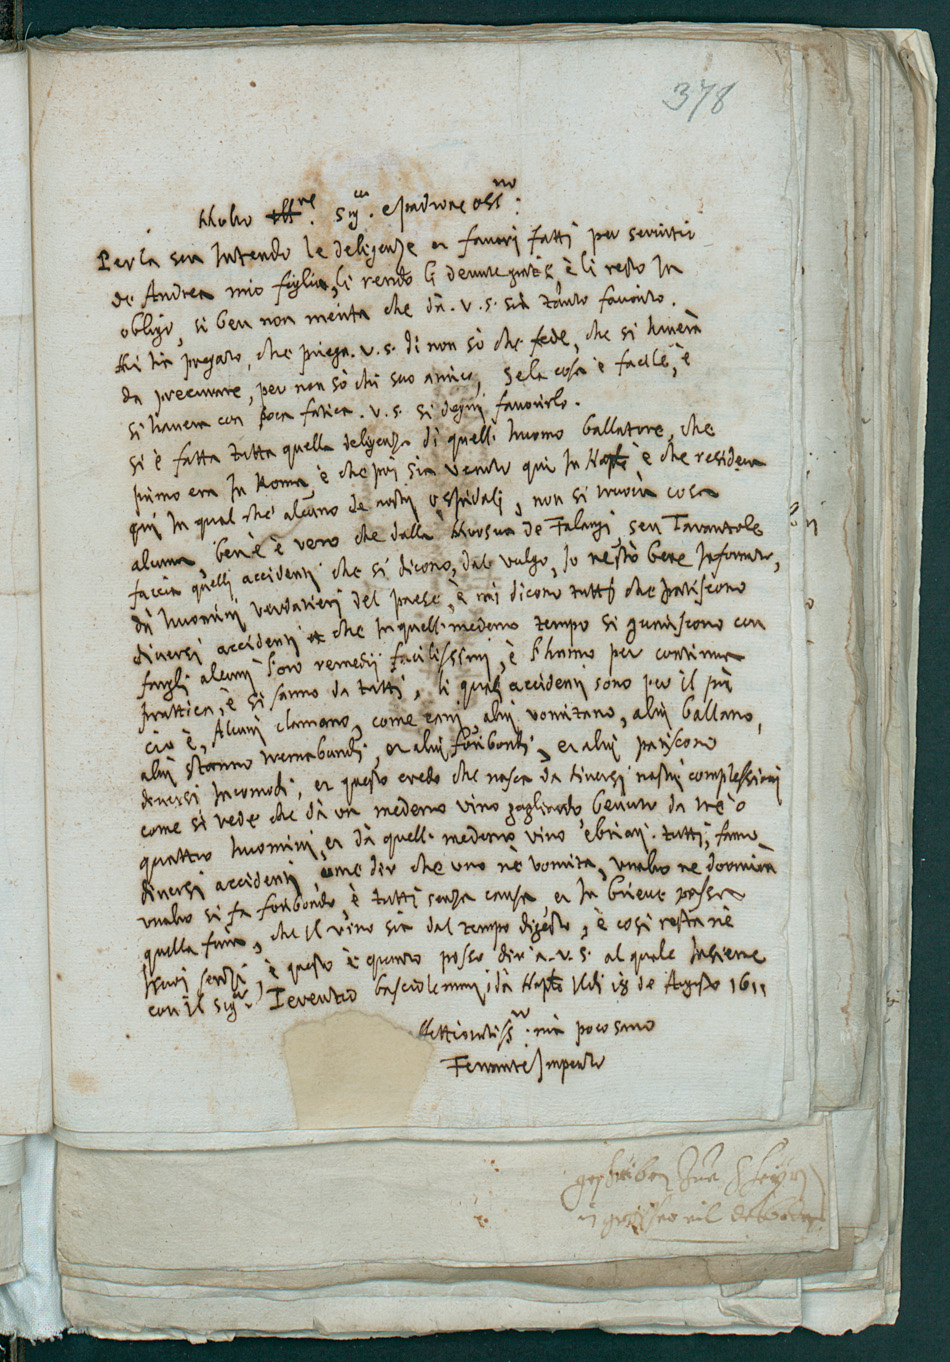 378
Molto Ill.re Sig.re e padrone oss.mo
Per la sua Intendo le deligenze et favori fatti per servitio
de Andrea mio figlio, li rendo le devute gratie è li resto In
obligo, si ben non merita che da .v.s. sia tanto favorito.
Mi ha pregato, che priega .v.s. di non sò che fede, che si haverà
da procurare, per non sò chi suo amico, se la cosa è facile, è
si havera con poca fatica .v.s. si degni favorirlo.
si è fatta tutta quella deligenza di quelli huomo ballatore, che
primo era In Roma, è che poi sia venuto qui In Napoli è che resideva
qui In qual che alcuno de nostri ospidali, non si trova cosa
alcuna, ben è è vero che dalla Morsura de Falangi, seu Tarantole
faccia quelli accidenti che si dicono, dal vulgo, Io ne stò bene Informato,
da huomini verdatieri del paese, è mi dicono tutti che patiscono
diversi accidenti et che In quelli medemo tempo si guariscono con
fargli alcuni loro remedij facilissimi, è l'hanno per continua
prattica, è si sanno da tutti, li quali accidenti sono per il più
cio è, Alcuni clamano, come cani, altri vomitano, altri ballano,
altri stanno tremabundi, et altri foribondi, et altri patiscono
diversi Incomodi, et questo credo che nasca da diversi nostri complessioni
come si vede che dà un medemo vino gagliardo bevuto da tre ò
quattro huomini, et dà quelli medemo vino ebriati tutti, fanno
diversi accidenti come dir che uno nè vomita, unaltro ne dormirà
unaltro si fa foribondo, è tutti senza causa et In breve passa
quella furia, che il vino sia dal tempo digesto, è cosi resta nè
è questo è quanto posso dir à .v.s. al quale Insieme
con il sig.r Terentio bascio le mani dà Napoli Il di 18 de Agosto 1611
pocosano
Ferrante Imperato
geschriben